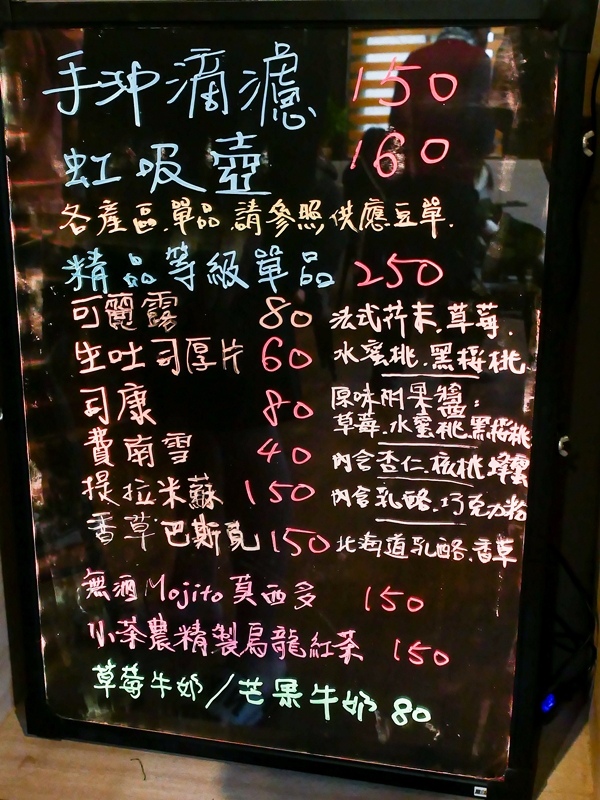 手冲滴濾 150
虹吸壺 160
各產區.單品.請參照供應豆單.
精品等級單品 250
可麗露 80 法式芥末.草莓.
水蜜桃.黑桜桃
生吐司厚片 60
司康 80 原味附果醬:
草莓.水蜜桃.黑桜桃
費南雪 40 內含杏仁.核桃.蜂蜜
提拉米蘇 150 內含乳酪.巧克力粉
香草巴斯克 150 北海道乳酪.香草
無酒Mojito莫西多 150
小茶農精製烏龍紅茶 150
草莓牛奶/芒果牛奶 80